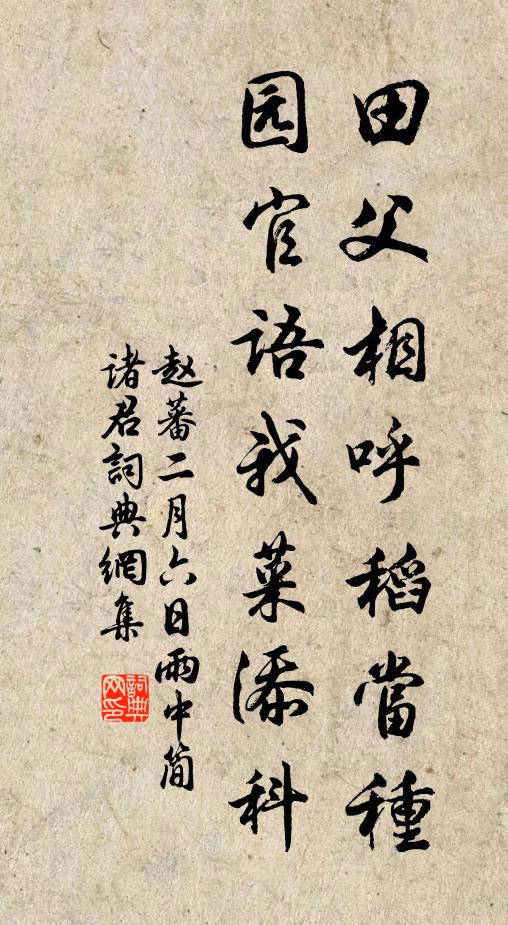 田父相呼稻當種
园官語我菜添科
赵蕃二月六日雨中简
诸君詞典網集
詞典网印